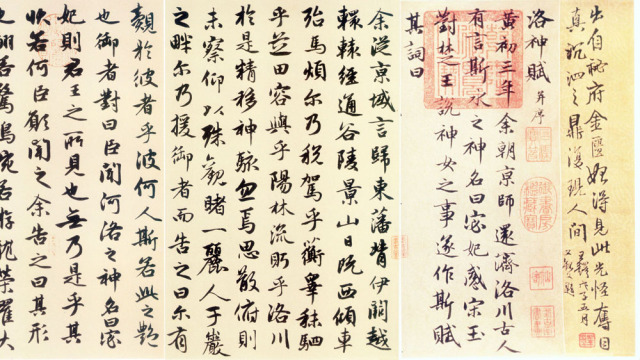 出自秘府金匱始得見此光怪奪目
泗之鼎復現人間
洛神賦 并序
黄初三年余朝京師還濟洛川古人
有言斯水之神名曰宓妃感宋玉
對楚之王說神女之事遂作斯賦
其詞曰
余從京域言歸東藩背伊闕越
轘轅經通谷陵景山日既西傾車
殆馬煩尔乃稅駕乎蘅皋秣駟
乎芝田容與乎陽林流眄乎洛川
於是精移神駭忽焉思散俯則
未察仰以殊觀睹一麗人于巖
之畔尔乃援御者而告之曰尔有
覿於彼者乎彼何人斯若此之艷
也御者對曰臣聞河洛之神名曰宓
妃則君王之所見也無乃是乎其
狀若何臣願聞之余告之曰其形
也翩若驚鴻宛若游龍榮曜